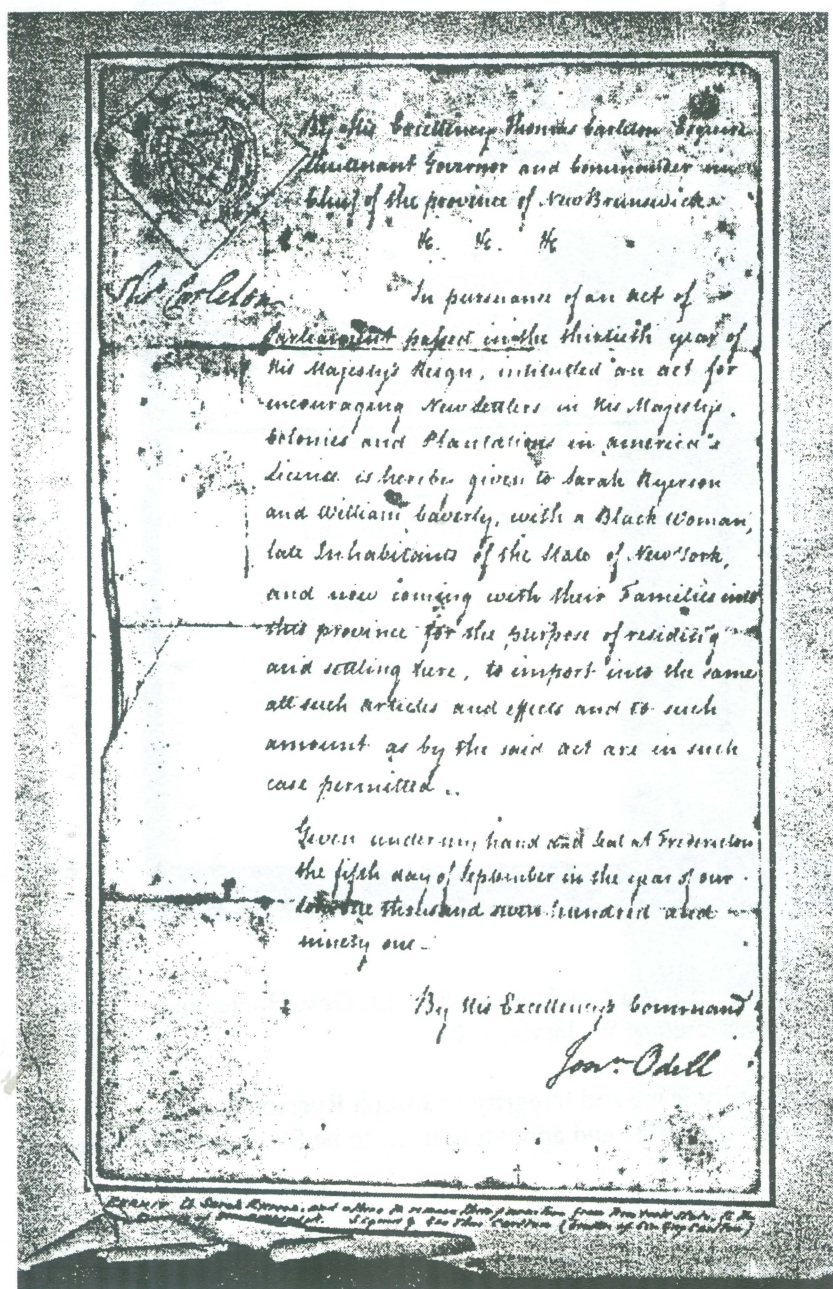 By His Excellency Thomas Carleton Esquire
Lieutenant Governor and Commander in
Chief of the province of New Brunswick
&c. &c. &c
Thos Carleton
In pursuance of an act of
Parliament passed in the thirtieth year of
His Majesty's Reign, intituled an act for
encouraging New Settlers in His Majesty's
Colonies and Plantations in America"
License is hereby given to Sarah Ryerson
and William Caverly, with a Black Woman,
late Inhabitants of the State of New York,
and now coming with their Families into
this province for the purpose of residing
and settling here, to import into the same
all such articles and effects and to such
amount as by the said act are in such
case permitted.
Given under my hand and Seal at Fredericton
the fifth day of September in the year of our
Lord one thousand seven hundred and
ninety one.
By His Excellency's Command
Jonn Odell
Permit to Sarah Ryerson, and others to remove from New York State, to the
Signed by Gov Thos Carleton (brother of Sir Guy Carleton)